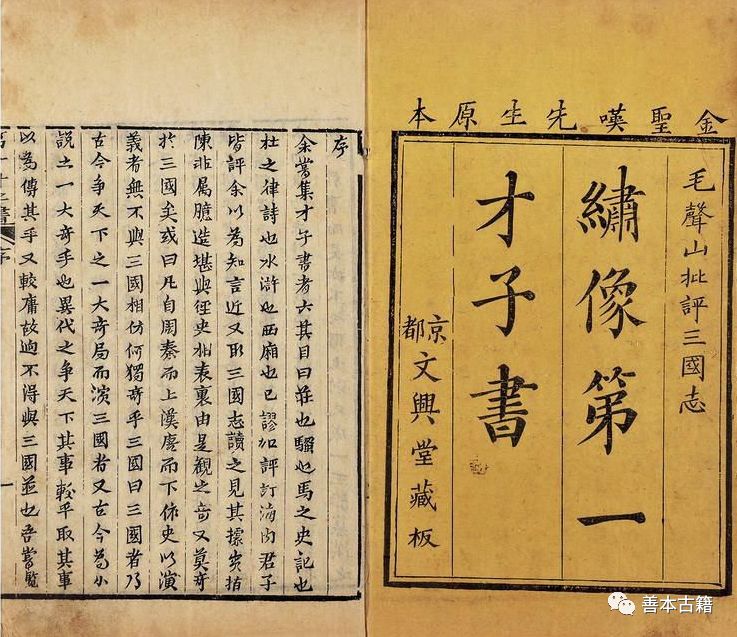 金聖嘆先生原本
毛聲山批評三國志
繡像第一
才子書
京都文興堂藏板
序
余嘗集才子書者六其目曰莊也騷也馬之史記也
杜之律詩也水滸也西廂也已謬加評訂海內君子
皆評余以為知言近又取三國志讀之見其據實指
陳非屬臆造堪與徑史相表裏由是觀之奇又莫奇
於三國矣或曰凡自周秦而上漢唐而下依史以演
義者無不與三國相仿何獨奇乎三國曰三國者乃
古今爭天下之一大奇局而演三國者又古今為小
說之一大奇手也異代之爭天下其事較平取其事
以為傳其手又較庸故迥不得與三國並也吾嘗覽
第一才子書 序 一
善本古籍